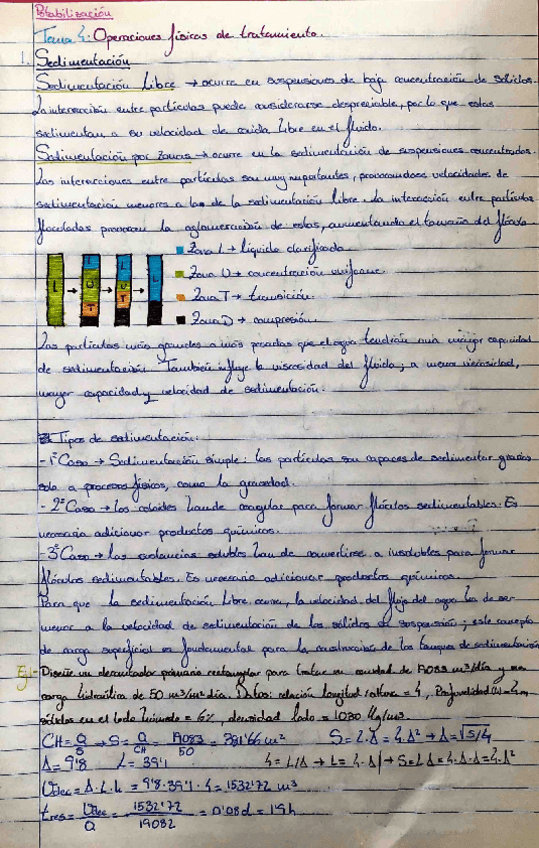 Potabilización
Tema 4: Operaciones físicas de tratamiento.
1. Sedimentación
Sedimentación Libre → ocurre en suspensiones de baja concentración de sólidos.
La interacción entre partículas puede considerarse despreciable, por lo que estas
sedimentan a su velocidad de caída libre en el fluido.
Sedimentación por zonas → ocurre en la sedimentación de suspensiones concentradas.
Las interacciones entre partículas son muy importantes, provocandose velocidades de
sedimentación menores a las de la sedimentación libre. La interacción entre partículas
floculadas provocan la aglomeración de estas, aumentando el tamaño del flóculo
Zona L → líquido clarificado
Zona U → concentración uniforme
Zona T → transición
Zona D → compresión
Las partículas más grandes o más pesadas que el agua tendrán una mayor capacidad
de sedimentación. También influye la viscosidad del fluido; a menor viscosidad,
mayor capacidad y velocidad de sedimentación.
Tipos de sedimentación:
- 1º Caso → Sedimentación simple: las partículas son capaces de sedimentar gracias
solo a procesos físicos, como la gravedad.
- 2º Caso → los coloides han de coagular para formar flóculos sedimentables. Es
necesario adicionar productos químicos.
- 3º Caso → las sustancias solubles han de convertirse a insolubles para formar
flóculos sedimentables. Es necesario adicionar productos químicos.
Para que la sedimentación libre ocurra, la velocidad del flujo del agua ha de ser
menor a la velocidad de sedimentación de los sólidos en suspensión; este concepto
de carga superficial es fundamental para la construcción de los tanques de sedimentación
Ej - Diseñe un decantador primario rectangular para tratar un caudal de 19083 m³/día y una
carga hidráulica de 50 m³/m² día. Datos: relación longitud/ = 4, Profundidad (h) = 4m
sólidos en el lodo húmedo = 6%, densidad lodo = 1030 Kg/m3.
CH = Q/S → S = Q/CH = 19083/50 = 381'66 m² S = L·A = 4·A² → A = √S/4
A = 9'8 L = 39'1 4 = L/A → L = 4·A → S = L·A = 4·A·A = 4·A²
VDec = A·L·h = 9'8·39'1·4 = 1532'72 m³
tres = VDec/Q = 1532'72/19082 = 0'08 d = 1'9 h